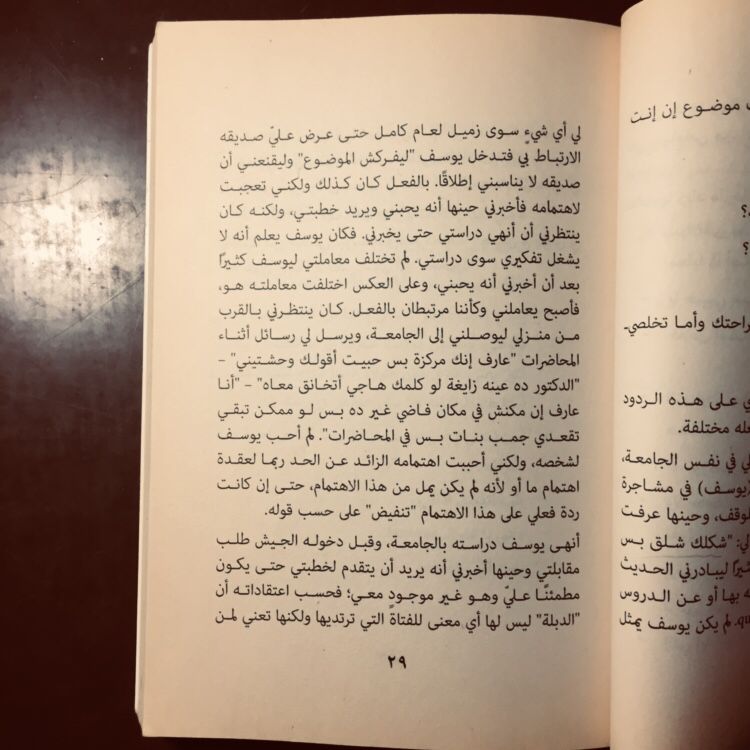 ـب موضـوع إن إنـت
؟
؟
راحتك وأمـا تخلصي۔
ي على هـذه الـردود
عله مختلفة.
لي في نفس الجامعة،
(يوسف) في مشاجرة
لموقف، وحينها عرفت
لي: "شكلك شلق بس
ثيرًا ليبادرني الحديث
ه بها أو عن الدروس
لم يكن يوسف يمثل
لي أي شيءٍ سوى زميل لعام كامل حتى عرض عليّ صديقه
الارتباط بي فتدخل يوسف "ليفركش الموضوع" وليقنعني أن
صديقه لا يناسبني إطلاقًا. بالفعل كان كذلك ولكني تعجبت
لاهتمامه فأخبرني حينها أنه يحبني ويريد خطبتي، ولكنه كان
ينتظرني أن أنهي دراستي حتى يخبرني. فكان يوسف يعلم أنه لا
يشغل تفكيري سوى دراستي. لم تختلف معاملتي ليوسف كثيرًا
بعد أن أخبرني أنه يحبني، وعلى العكس اختلفت معاملته هو،
فأصبح يعاملني وكأننا مرتبطان بالفعل. كان ينتظرني بالقرب
من منزلي ليوصلني إلى الجامعة، ويرسل لي رسائل أثناء
المحاضرات "عارف إنك مركزة بس حبيت أقولك وحشتيني" –
"الدكتور ده عينه زايغة لو كلمك هاجي أتخانق معاه" – "أنا
عارف إن مكنش في مكان فاضي غير ده بس لو ممكن تبقي
تقعدي جمب بنات بس في المحاضرات". لم أحب يوسف
لشخصه، ولكني أحببت اهتمامه الزائد عن الحد ربما لعقدة
اهتمام ما أو لأنه لم يكن يمل من هذا الاهتمام، حتى إن كانت
ردة فعلي على هذا الاهتمام "تنفيض" على حسب قوله.
أنهى يوسف دراسته بالجامعة، وقبل دخوله الجيش طلب
مقابلتي وحينها أخبرني أنه يريد أن يتقدم لخطبتي حتى يكون
مطمئنًا عليّ وهو غير موجودٍ معي؛ فحسب اعتقاداته أن
"الدبلة" ليس لها أي معنى للفتاة التي ترتديها ولكنها تعني لمن
٢٩